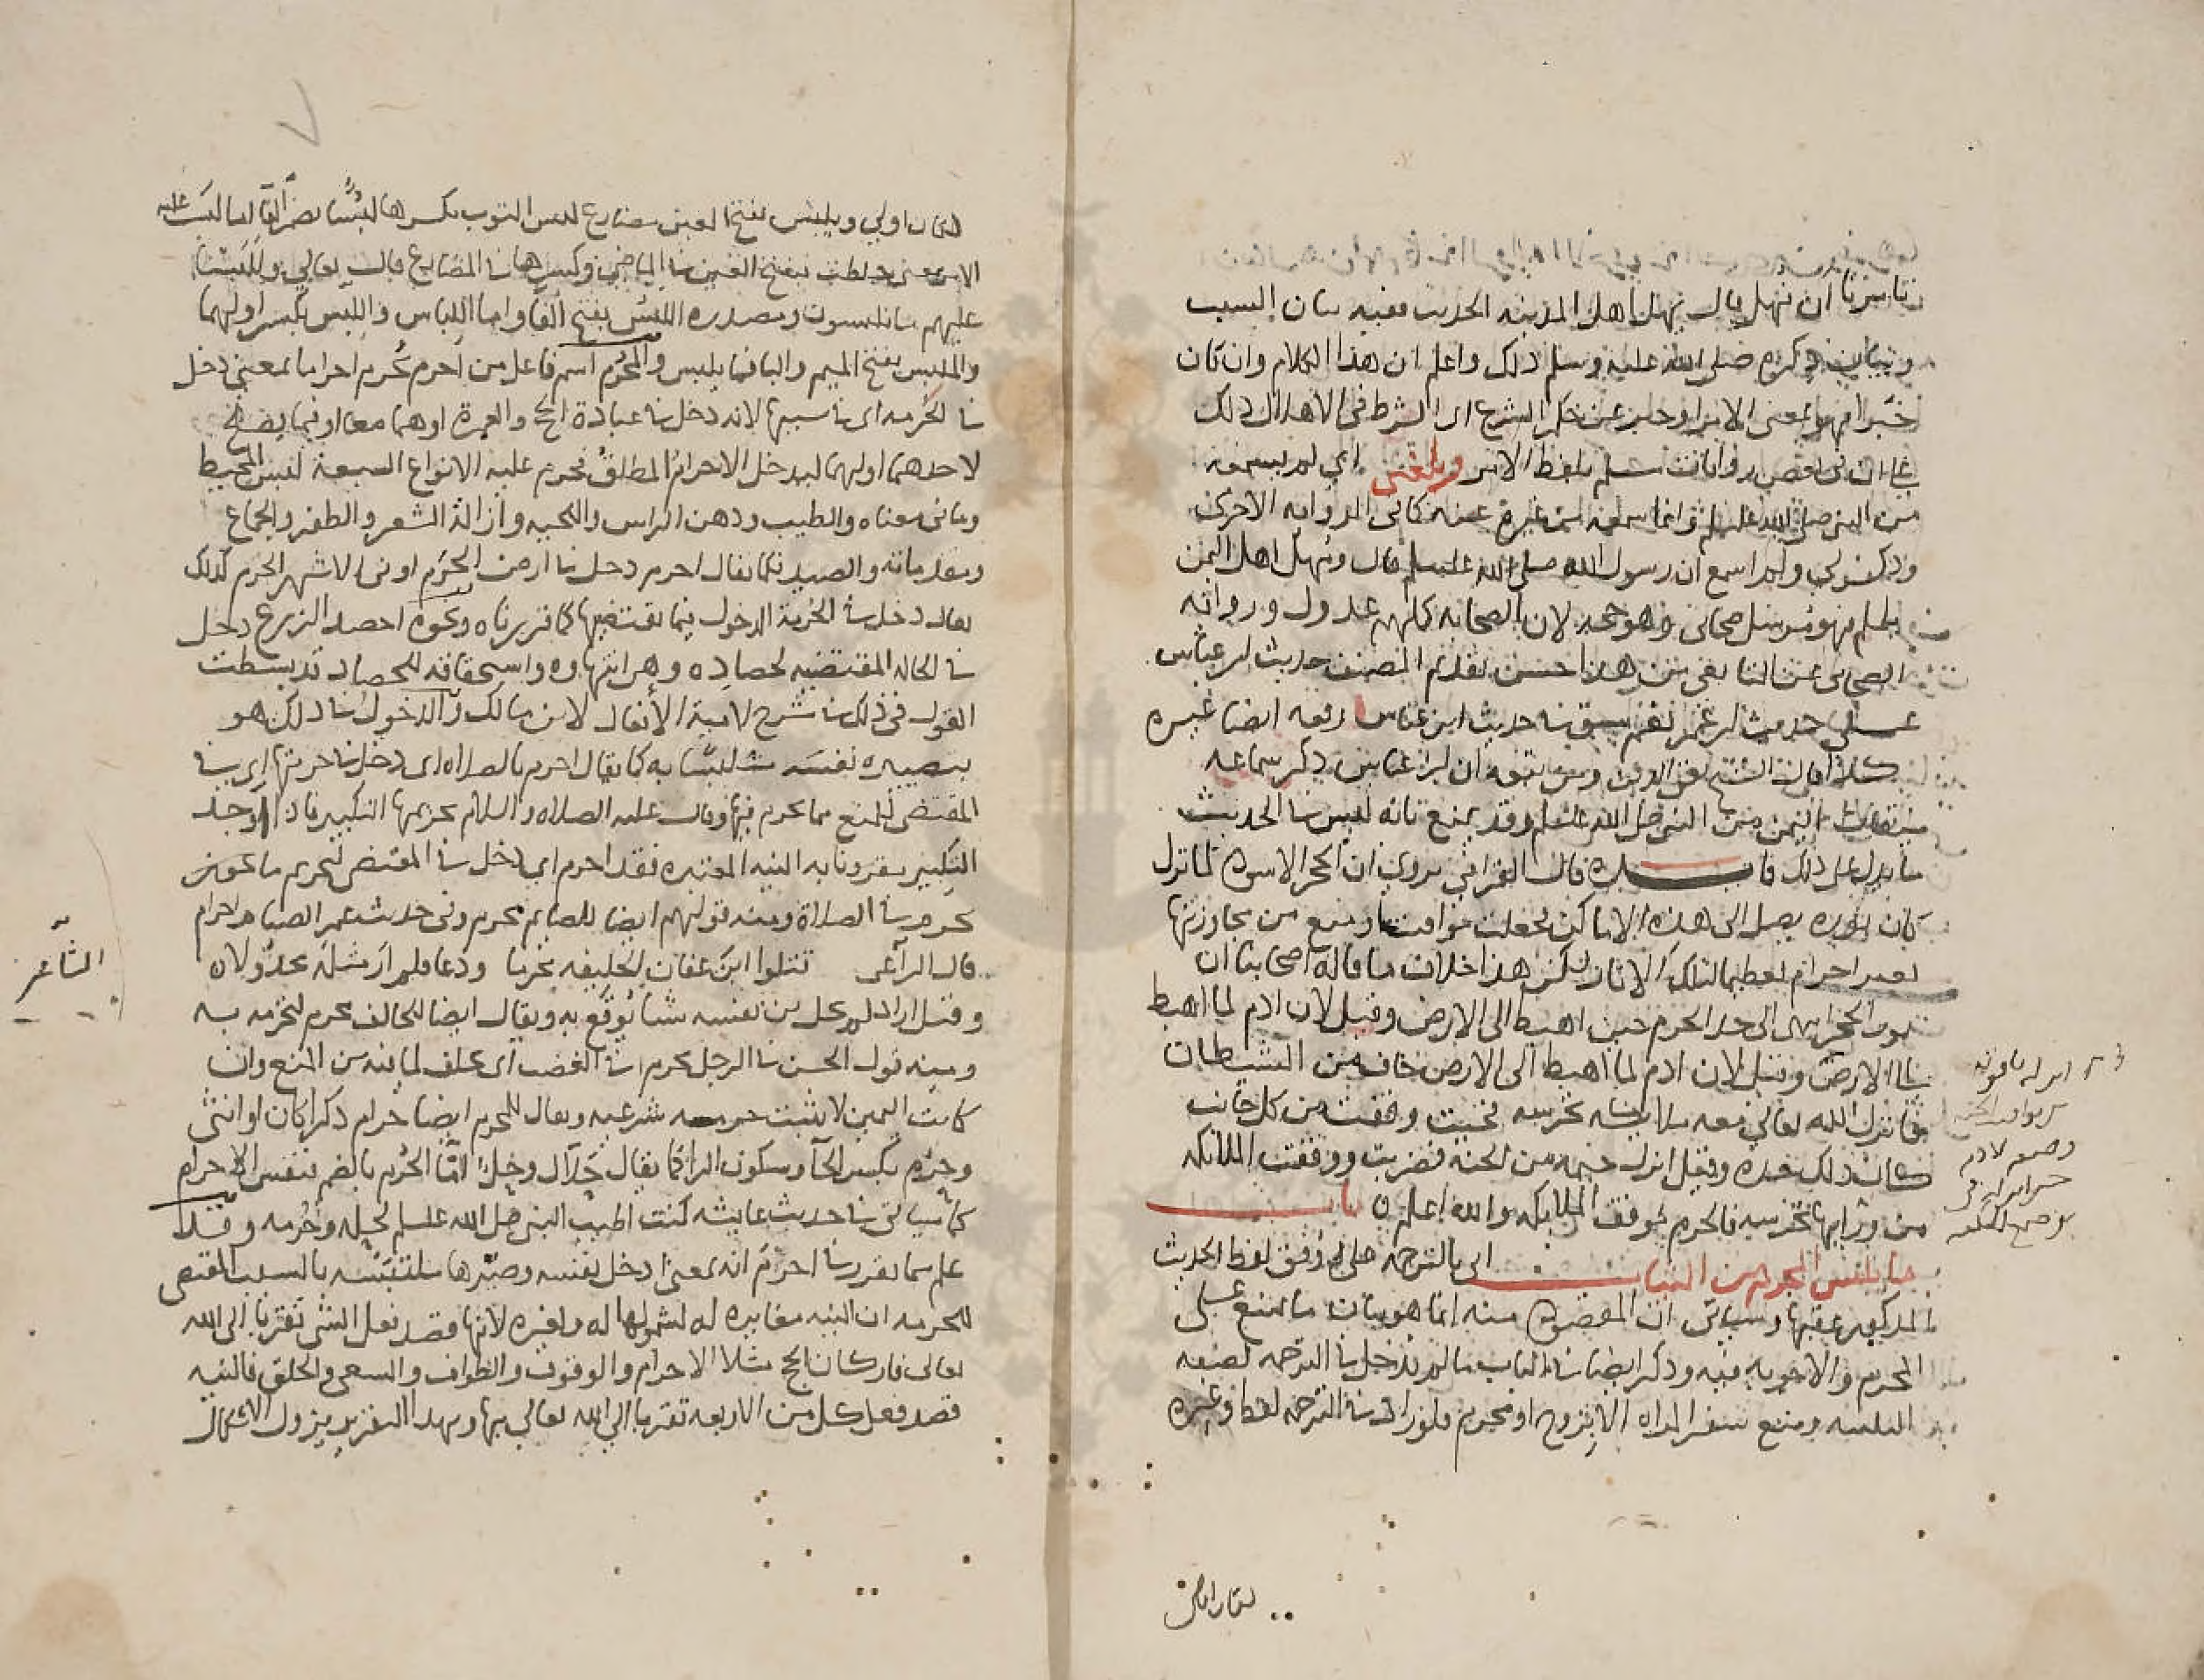 تامرنا ان نهل قال يهل اهل المدينه الحديث ففيه بيان السبب
وبيان ذكره صلى الله عليه وسلم ذلك واعلم ان هذا الكلام وان كان
خبرا فهو بمعنى الامر او خبر عن حكم الشرع اى الشرط فى الاهلال ذلك
على ان فى بعض روايات مسلم بلفظ الامر وبلغنى اي لم يسمعه
من النبى صلى الله عليه وسلم وانما سمعه من غيره عنه كما فى الروايه الاخرى
وذكر لي ولم اسمع ان رسول الله صلى الله عليه وسلم قال ويهل اهل اليمن
يلملم فهو مرسل صحابى وهو حجه لان الصحابه كلهم عدول وروايه
الصحابى عن التابعى هذا حسن تقديم المصنف حديث ابن عباس
على حديث ابن عمر نعم سبق فى حديث ابن عباس رفعه ايضا غيره
كذا قال الشيخ تقى الدين ومن تبعه ان ابن عباس ذكر سماعه
ميقات اليمن من النبى صلى الله عليه وسلم وقد يمنع بانه ليس فى الحديث
ما يدل على ذلك فايده قال القرافي يروى ان الحجر الاسود لما نزل
كان نوره يصل الى هذه الاماكن فجعلت مواقيت ومنع من مجاوزتها
لغير احرام تعظيما لتلك الاثار لكن هذا خلاف ما قاله اصحابنا ان
نور الحجر انتهى الى حد الحرم حين اهبط الى الارض وقيل لان ادم لما اهبط
الى الارض وقيل لان ادم لما اهبط الى الارض خاف من الشيطان
فانزل الله تعالى معه ملايكه تحرسه فحيث وقفت من كل جانب
كان ذلك حده وقيل انزل خيمه من الجنه فضربت ووقفت الملايكه
من ورايها تحرسه فالحرم موقف الملايكه والله اعلم ٥ باب
ما يلبس المحرم من الثياب اتى بالترجمه على وفق لفظ الحديث
المذكور عقبها وسياتى ان المقصود منه انما هو بيان ما يمتنع على
المحرم والاجوبه فيه وذكر ايضا فى الباب ما لم يدخل فى الترجمه كصيغه
التلبيه ومنع سفر المراه الا بزوج او محرم فلو زاد فى الترجمه لفظ وغيره
لكان اولي ويلبس بفتح العين مضارع لبس الثوب بكسرها لبسا بضم الفا اما لبس عليه
الامر بمعنى خلطت فبفتح العين فى الماضى وكسرها فى المضارع قال تعالي وللبسنا
عليهم ما يلبسون ومصدره اللبس بفتح الفا واما اللباس واللبس بكسر اولهما
والملبس بفتح الميم والبا فما يلبس والمحرم اسم فاعل من احرم يحرم احراما بمعنى دخل
فى الحرمه اى فى سببها لانه دخل فى عبادة الحج والعمرة او هما معا او فيما يصلح
لاحدهما او لهما ليدخل الاحرام المطلق فحرم عليه الانواع السبعة لبس المخيط
وما فى معناه والطيب ودهن الراس واللحيه وازالة الشعر والظفر والجماع
ومقدماته والصيد كما يقال احرم دخل فى ارض الحرم او فى الاشهر الحرم كذلك
يقال دخل فى الحرمة الدخول فيما يقتضيها كما قررناه ونحوه احصد الزرع دخل
فى الحاله المقتضيه لحصاده وهى انتهاوه واستحقاقه للحصاد قد بسطت
القول فى ذلك فى شرح لامية الافعال لابن مالك والدخول فى ذلك هو
بتصييره نفسه متلبسا به كما يقال احرم بالصلاه اى دخل فى حرمتها اى فى
المقتضى للمنع مما يحرم فيها وقال عليه الصلاه والسلام تحريمها التكبير فاذا وجد
التكبير مقرونا به النيه المعتبره فقد احرم اي دخل فى المقتضى لتحريم ما
يحرم فى الصلاة ومنه قولهم ايضا للصايم محرم وفى حديث عمر الصيام احرام
قال الراعى قتلوا ابن عفان الخليفه محرما ودعا فلم ار مثله مخذولا ٥
وقيل اراد لم يحل من نفسه شيا يوقع به ويقال ايضا للحالف محرم لتحرمه به
ومنه قول الحسن فى الرجل يحرم فى الغضب اى يحلف لما فيه من المنع وان
كانت اليمين لا تثبت حرمه شرعيه ويقال للمحرم ايضا حرام ذكرا كان او انثى
وحرم بكسر الحا وسكون الرا كما يقال حلال وحل اما الحرم بالضم فنفس الاحرام
كما سياتى فى حديث عايشه كنت اطيب النبى صلى الله عليه وسلم لحله وحرمه وقد
علم مما تقرر فى احرم انه بمعنى ادخل نفسه وصيرها متلبسه بالسبب المقتضى
للحرمه ان النيه مغايره له لشمولها له ولغيره لانها قصد فعل الشى تقربا الى الله
تعالى فاركان الحج مثلا الاحرام والوقوف والطواف والسعى والحلق فالنيه
قصد فعل كل من الاربعه تقربا الي الله تعالي بها وبهذا التقرير يزول الاشكال
الشاعر
لكان اولى